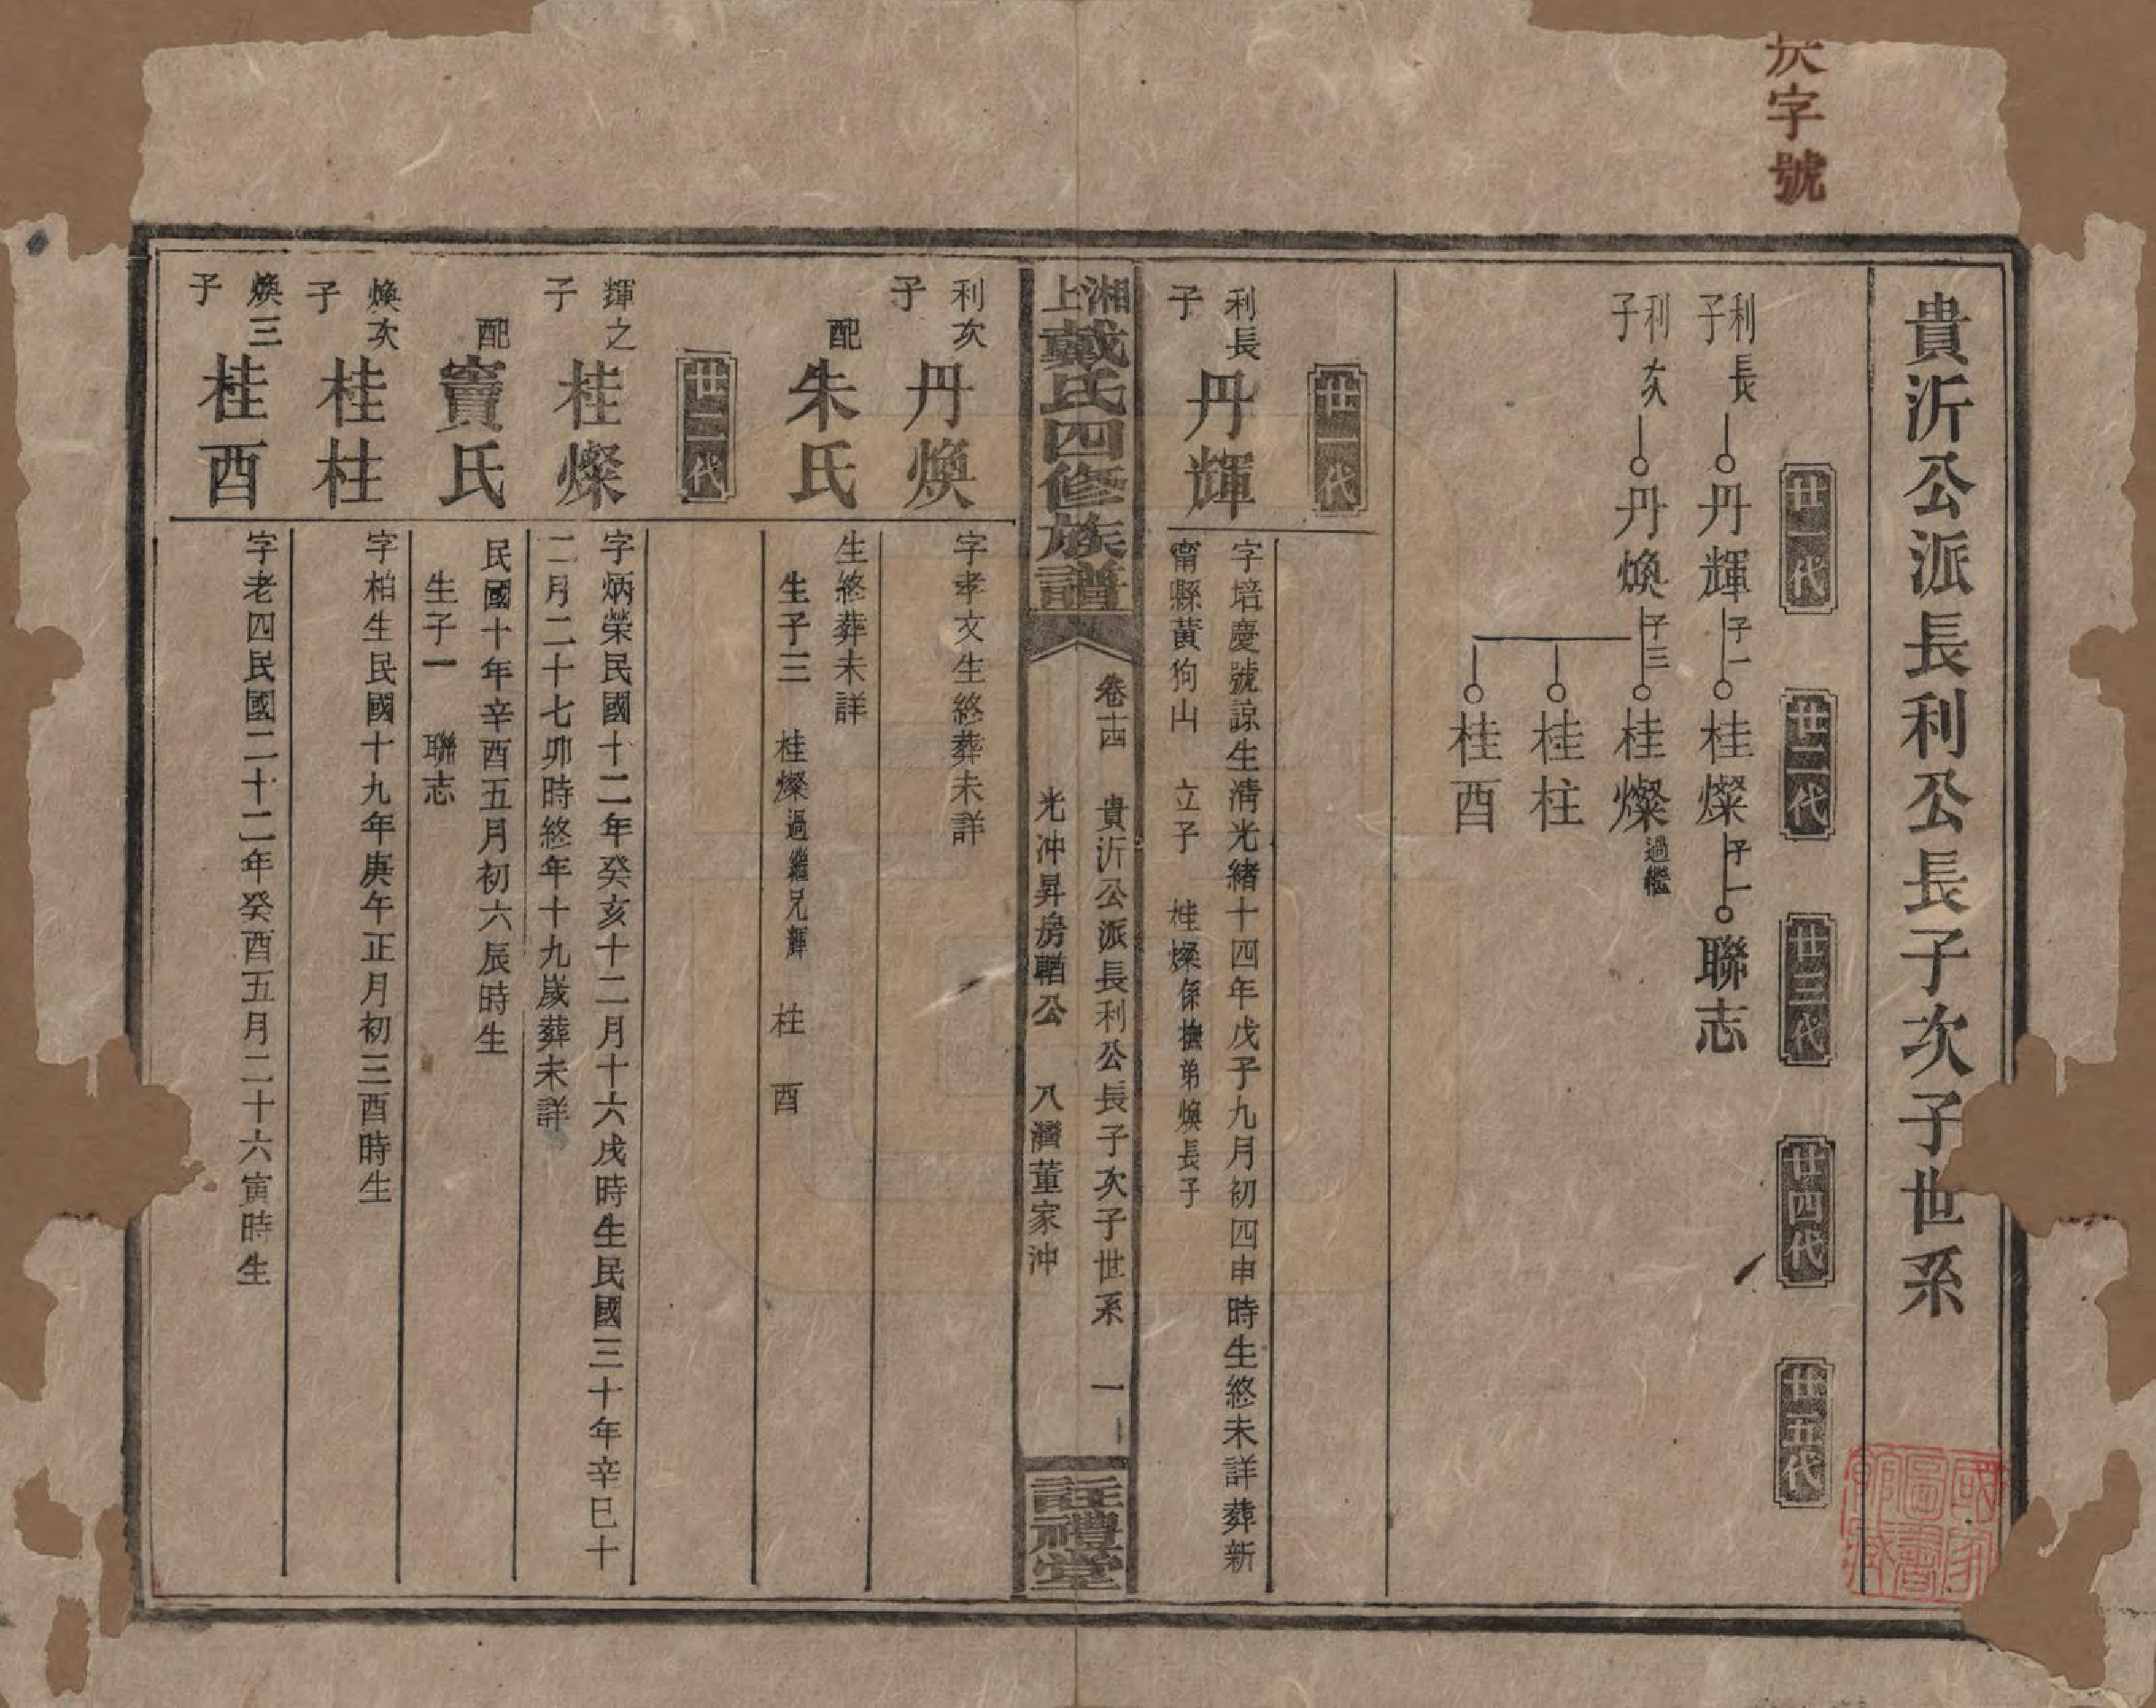 灰字號
貴沂公派長利公長子次子世系
廿一代
廿二代
廿三代
廿四代
廿五代
利長子 丹輝 子一 桂燦 子一 聯志
利次子 丹煥 子三 桂燦 過繼
桂柱
桂酉
廿一代
利長子 丹輝
字培慶號諒生清光緒十四年戊子九月初四申時生終未詳葬新
甯縣黃狗山 立子 桂燦係撫弟煥長子
湘上戴氏四修族譜
卷十四 貴沂公派長利公長子次子世系 一
光冲昇房 公 八灣董家冲
註禮堂
利次子 丹煥
字孝文生終葬未詳
配 朱氏
生終葬未詳
生子三 桂燦過繼兄輝 柱 酉
廿二代
輝之子 桂燦
字炳榮民國十二年癸亥十二月十六戌時生民國三十年辛巳十
二月二十七卯時終年十九歲葬未詳
配 竇氏
民國十年辛酉五月初六辰時生
生子一 聯志
煥次子 桂柱
字柏生民國十九年庚午正月初三酉時生
煥三子 桂酉
字老四民國二十二年癸酉五月二十六寅時生
國家圖書館藏